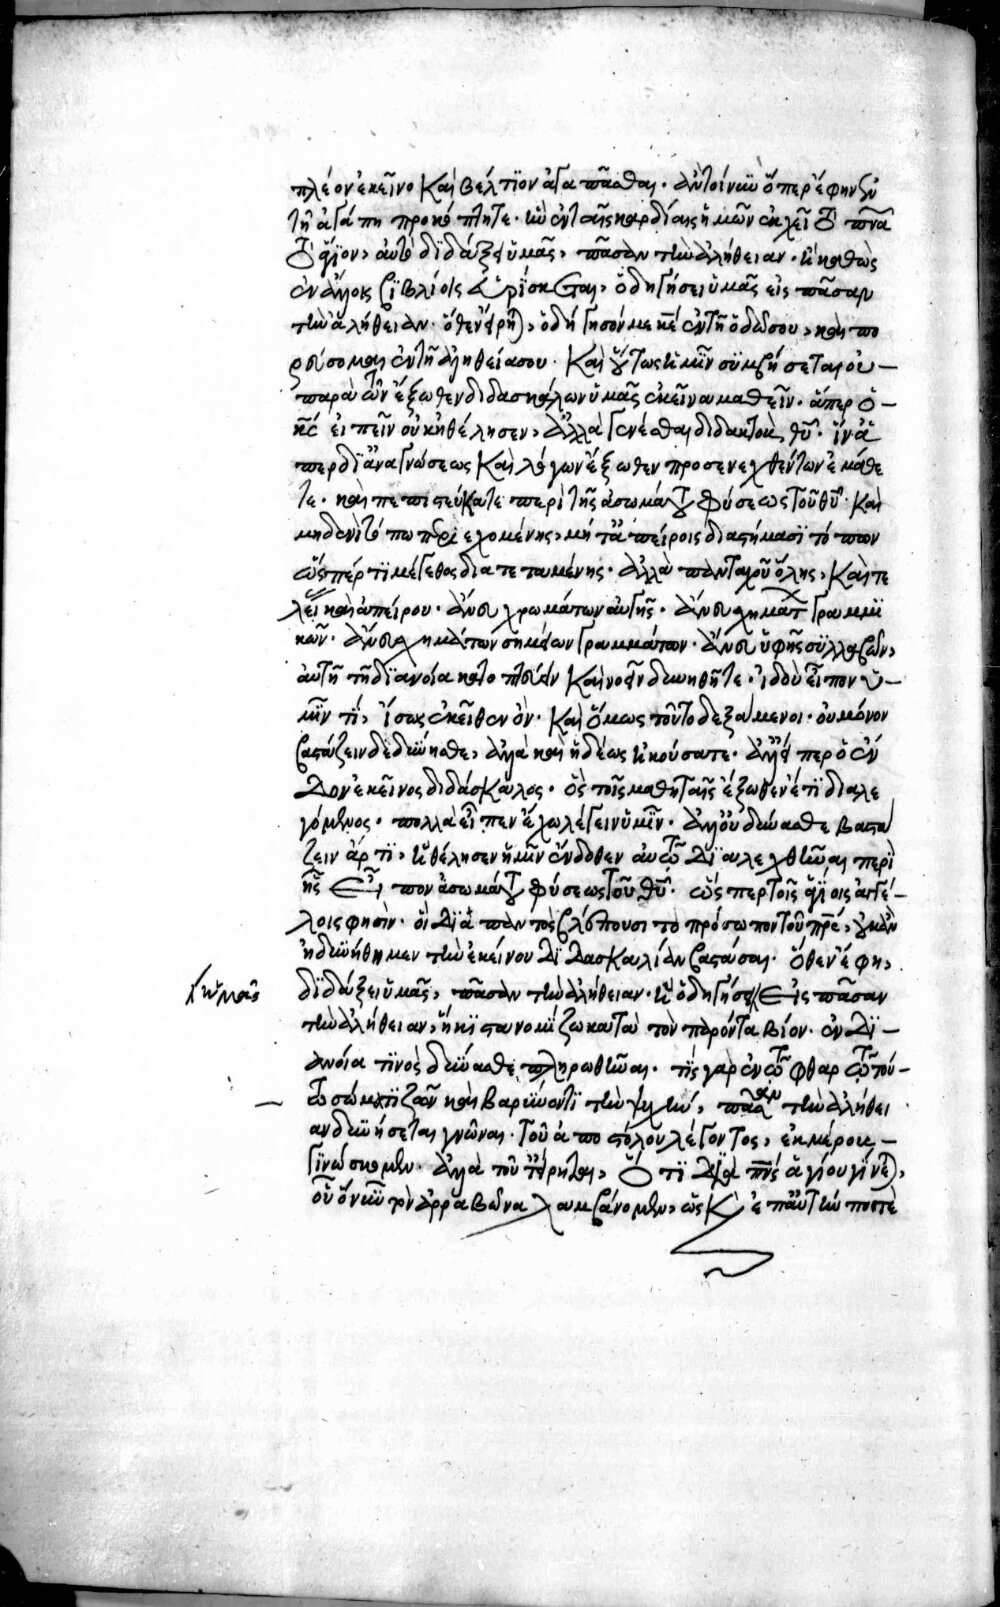 πλέον ἐκεῖνο καὶ βέλτϊον ἀγαπᾶσθαι· αὐτοὶ νῦν ὅπερ ἔφην ἐν
τῆ ἀγάπη προκόπτητε· καὶ ἐν ταῖς καρδίαις ἡμῶν ἐκχεῖ τὸ πνα
τὸ ἅγϊον, αὐτὸ διδάξει ὑμᾶς, πᾶσαν τὴν ἀλήθειαν· ἢ καθὼς
ἐν ἄλλοις βϊβλίοις εὑρίσκεται, ὁδηγήσει ὑμᾶς εἰς πᾶσαν
τὴν ἀλήθειαν· ὅθεν εἴρηται, ὁδήγησόν με κε ἐν τῆ ὁδῶ σου, καὶ πο
ρεύσομαι ἐν τῆ ἀληθεία σου· καὶ οὕτως ὑμῖν συμβήσεται οὐ
παρὰ τῶν ἔξωθεν διδασκάλων ὑμᾶς ἐκεῖνα μαθεῖν· ἅπερ ὁ
κς εἰπεῖν οὐκ ἠθέλησεν, ἀλλὰ γενέσθαι διδακτοὺς θυ· ἵν' ἅ
περ δϊ' ἀναγνώσεως καὶ λόγων ἔξωθεν προσενεχθέντων ἐμάθε
τε· καὶ πεπιστεύκατε περὶ τῆς ἀσωμάτου φύσεως τοῦ θυ· καὶ
μηδενὶ τόπω περιεχομένης, μήτε ἀπείροις διαστήμασϊ τόπων
ὥσπέρ τϊ μέγεθος διατεταμένης· ἀλλὰ πανταχοῦ ὅλης, καὶ τε
λεί καὶ ἀπείρου· ἄνευ χρωμάτων αὐτῆς· ἄνευ σχημάτ γραμμϊ
κῶν· ἄνευ σχημάτων σημείων γραμμάτων· ἄνευ ὑφῆς συλλαβῶν,
αὐτῆ τῆ διανοία κατοπτεύειν καὶ νοεῖν δυνηθῆτε· ἰδοὺ εἶπον ὑ
μῖν τϊ, ἴσως ἐκεῖθεν ὄν· καὶ ὅμως τοῦτο δεξάμενοι· οὐ μόνον
βαστάζειν δεδύνησθε, ἀλλὰ καὶ ἡδέως ἠκούσατε· ἀλλ' εἴπερ ὁ ἔν
δον ἐκεῖνος διδάσκαλος· ὃς τοῖς μαθηταῖς ἔξωθεν ἔτϊ διαλε
γόμενος· πολλὰ εἶπεν ἔχω λέγειν ὑμῖν· ἀλλ' οὐ δύνασθε βαστά
ζειν ἄρτϊ, ἠθέλησεν ἡμῖν ἔνδοθεν αὐτῶ δϊαλεχθῆναι περὶ
ἧς εἶπον ἀσωμάτου φύσεως τοῦ θυ· ὥσπερ τοῖς ἁγίοις ἀγγέ
λοις φησὶν· οἳ δϊὰ παντὸς βλέπουσι τὸ πρόσωπον τοῦ πρς, οὐκ ἂν
ἠδυνήθημεν τὴν ἐκείνου δϊδασκαλίαν βαστάσαι· ὅθεν ἔφη,
διδάξει ὑμᾶς, πᾶσαν τὴν ἀλήθειαν· ἢ ὁδηγήσει εἰς πᾶσαν
τὴν ἀλήθειαν, ἥκϊστα νομίζω κατὰ τὸν παρόντα βίον· ἐν δϊ
ανοία τϊνὸς δύνασθαι πληρωθῆναι· τίς γὰρ ἐν τῶ φθαρτῶ τού
τω σώματϊ ζῶν καὶ βαρύνοντϊ τὴν ψυχὴν, πᾶσαν τὴν ἀλήθει
αν δυνήσεται γνῶναι· τοῦ ἀποστόλου λέγοντος, ἐκ μέρους
γϊνώσκομεν· ἀλλὰ τοῦτ' εἴρηται, ὅτϊ δϊὰ πνς ἁγίου γίνεται,
οὗ νῦν τὸν ἀρραβῶνα λαμβάνομεν, ὡς καὶ ἐπ' αὐτήν ποτε